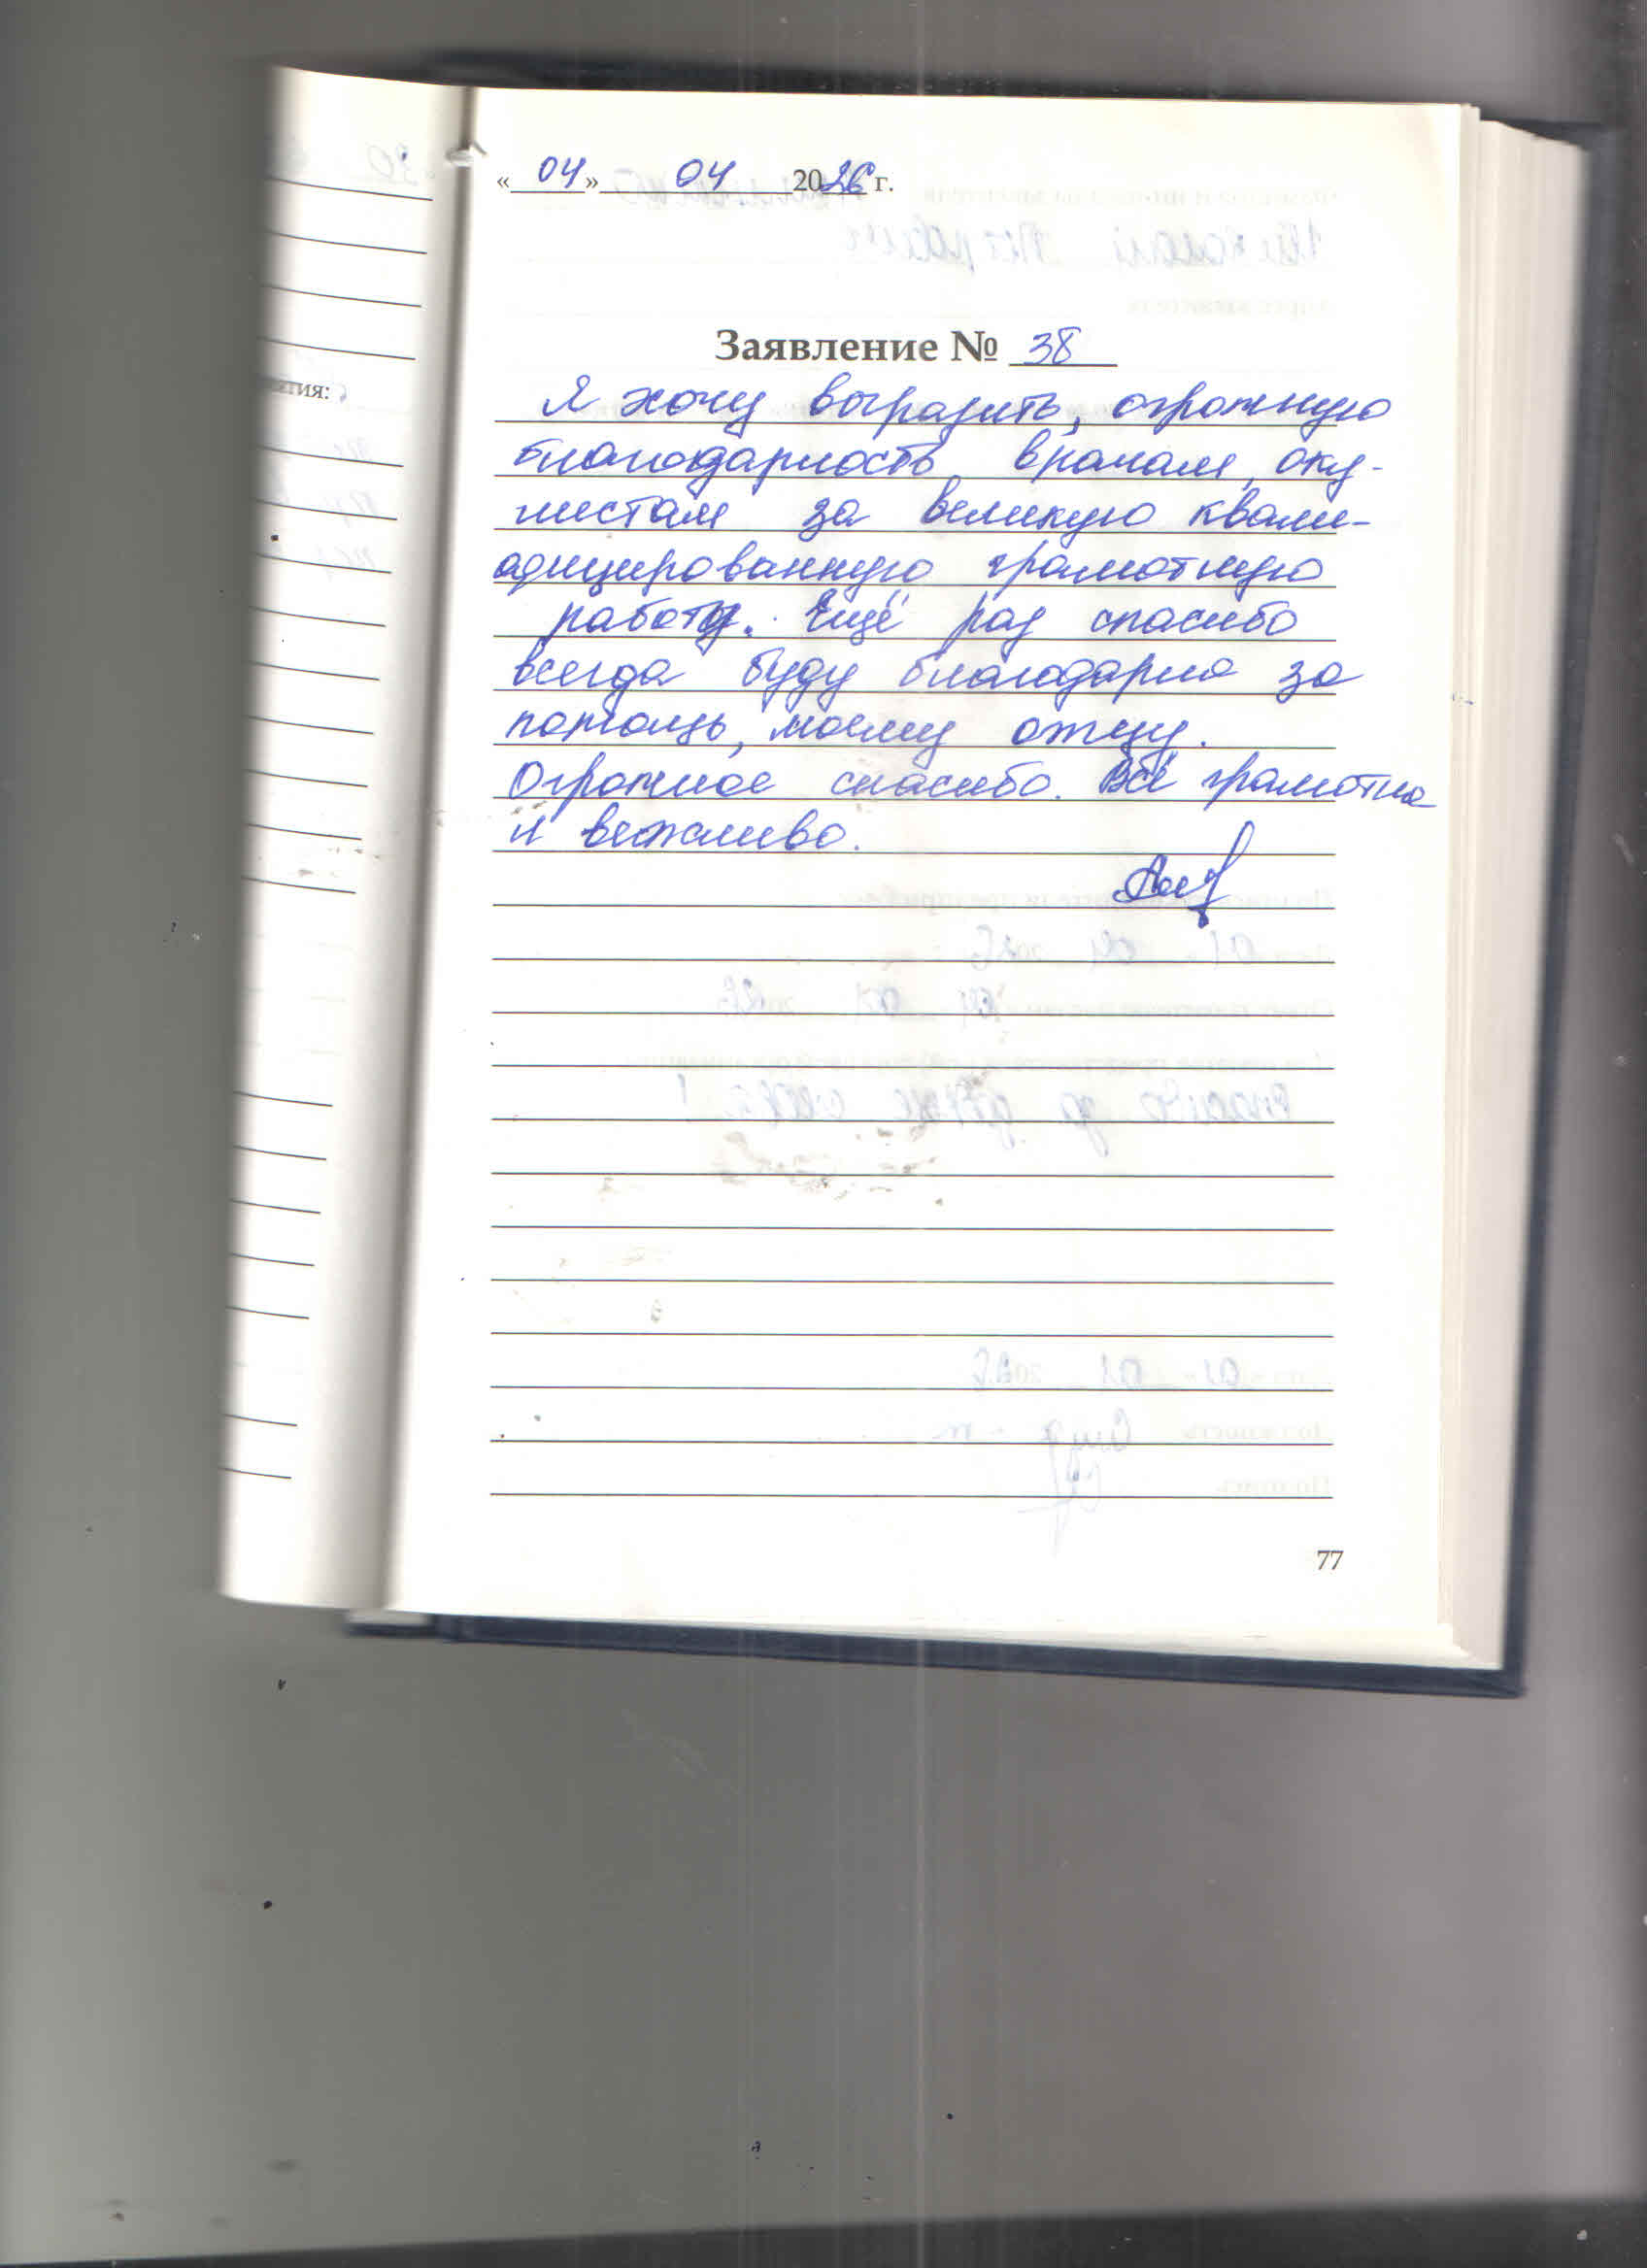 « 04 » 04 2026 г.
Заявление № 38
Я хочу выразить, огромную
благодарность врачам, оку-
листам за великую квали-
фицированную грамотную
работу. Ещё раз спасибо
всегда буду благодарна за
помощь, моему отцу.
Огромное спасибо. Всё грамотно
и вежливо.
77